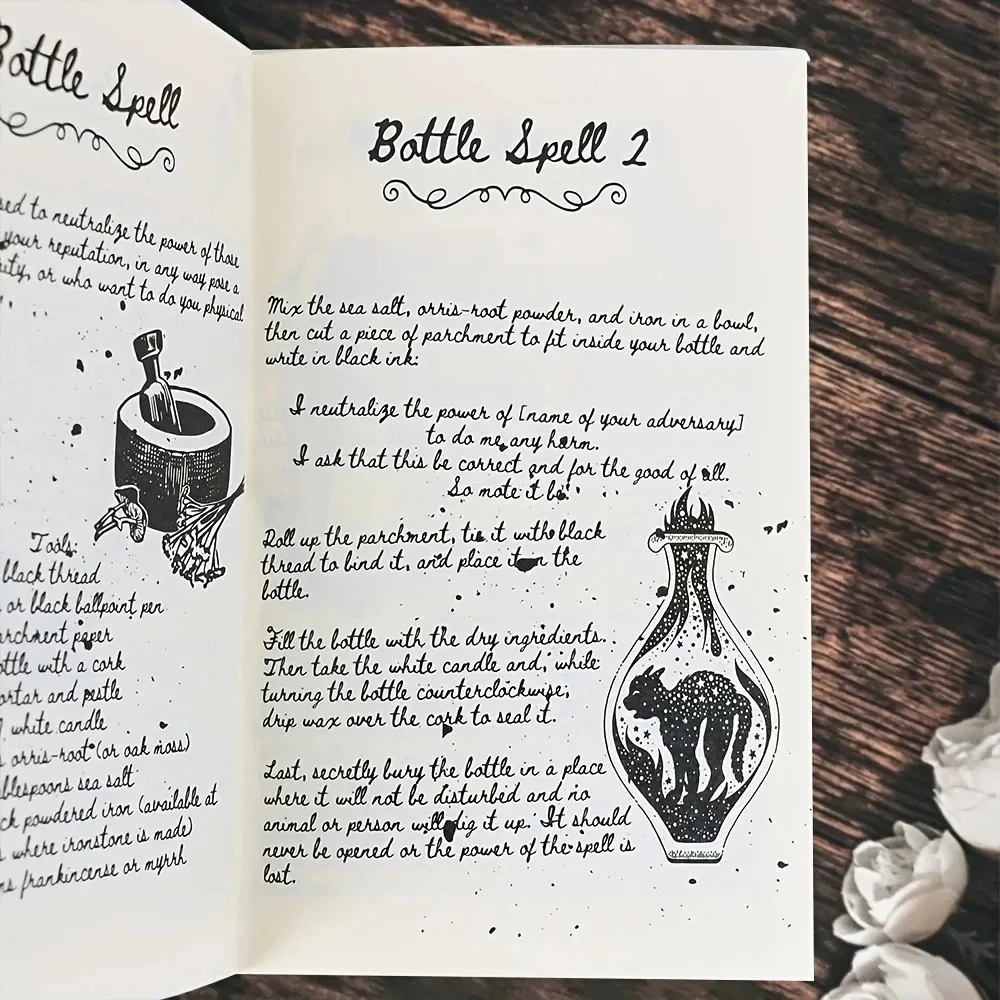 Bottle Spell
sed to neutralize the power of those
your reputation, in any way pose a
or who want to do you physical
Tools:
black thread
or black ballpoint pen
paper
with a cork
and pestle
white candle
orris-root (or oak moss)
sea salt
powdered iron (available at
where ironstone is made)
frankincense or myrrh
Bottle Spell 2
Mix the sea salt, orris-root powder, and iron in a bowl,
then cut a piece of parchment to fit inside your bottle and
write in black ink:
I neutralize the power of [name of your adversary]
to do me any harm.
I ask that this be correct and for the good of all.
So mote it be.
Roll up the parchment, tie it with black
thread to bind it, and place it in the
bottle.
Fill the bottle with the dry ingredients.
Then take the white candle and, while
turning the bottle counterclockwise,
drip wax over the cork to seal it.
Last, secretly bury the bottle in a place
where it will not be disturbed and no
animal or person will dig it up. It should
never be opened or the power of the spell is
lost.